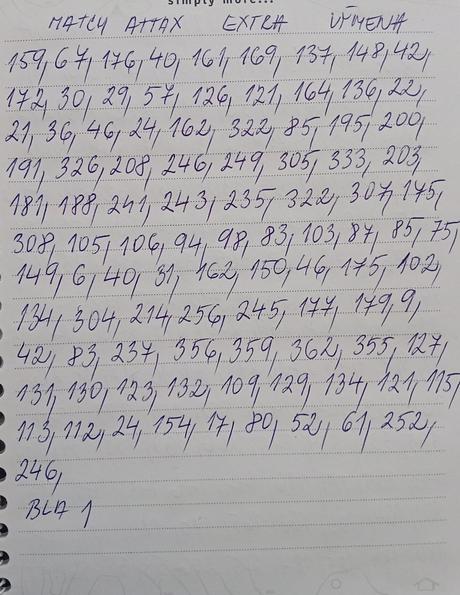 simply more...
MATCH ATTAX EXTRA VÝMENA
159, 67, 176, 40, 161, 169, 137, 148, 42,
172, 30, 29, 57, 126, 121, 164, 136, 22,
21, 36, 46, 24, 162, 322, 85, 195, 200,
191, 326, 208, 246, 249, 305, 333, 203,
181, 188, 241, 243, 235, 322, 307, 175,
308, 105, 106, 94, 98, 83, 103, 87, 85, 75,
149, 6, 40, 31, 162, 150, 46, 175, 102,
134, 304, 214, 256, 245, 177, 179, 9,
42, 83, 237, 356, 359, 362, 355, 127,
131, 130, 123, 132, 109, 129, 134, 121, 115,
113, 112, 24, 154, 17, 80, 52, 61, 252,
246,
BLA 1